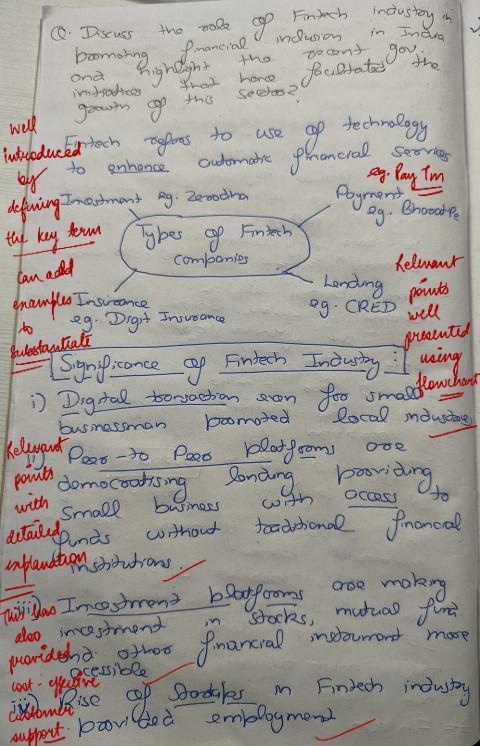 Q. Discuss the role of Fintech industry in
promoting financial inclusion in India
and highlight the recent gov.
initiatives that have facilitated the
growth of this sector?
Fintech refers to use of technology
to enhance automatic financial services
well
introduced
by
defining
the key term
can add
examples
to
substantiate
eg. Pay Tm
Investment eg. Zerodha
Payment
eg. BharatPe
Types of Fintech
companies
Insurance
eg. Digit Insurance
Lending
eg. CRED
Relevant
points
well
presented
using
flowchart
Significance of Fintech Industry :
i) Digital transaction even for small
businessman promoted local industries
ii) Peer-to Peer platforms are
democratising lending providing
small business with access to
funds without traditional financial
institutions.
Relevant
points
with
detailed
explanation
iii) Investment platforms are making
investment in stocks, mutual fund
and other financial instrument more
acessible
This has
also
provided
cost-effective
customer
support.
iv) Rise of in Fintech industry
provided employment